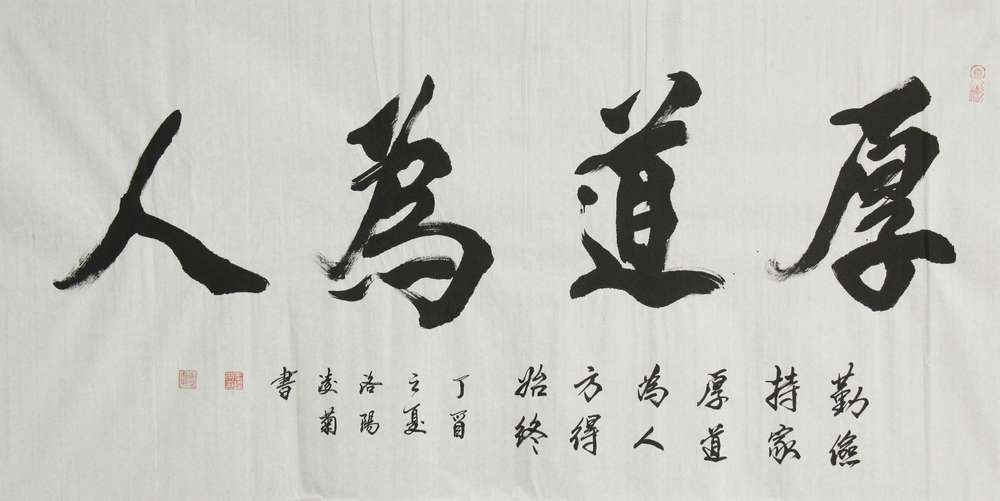 厚道為人
勤儉
持家
厚道
為人
方得
始終
丁酉
之夏
洛陽
凌菊
書